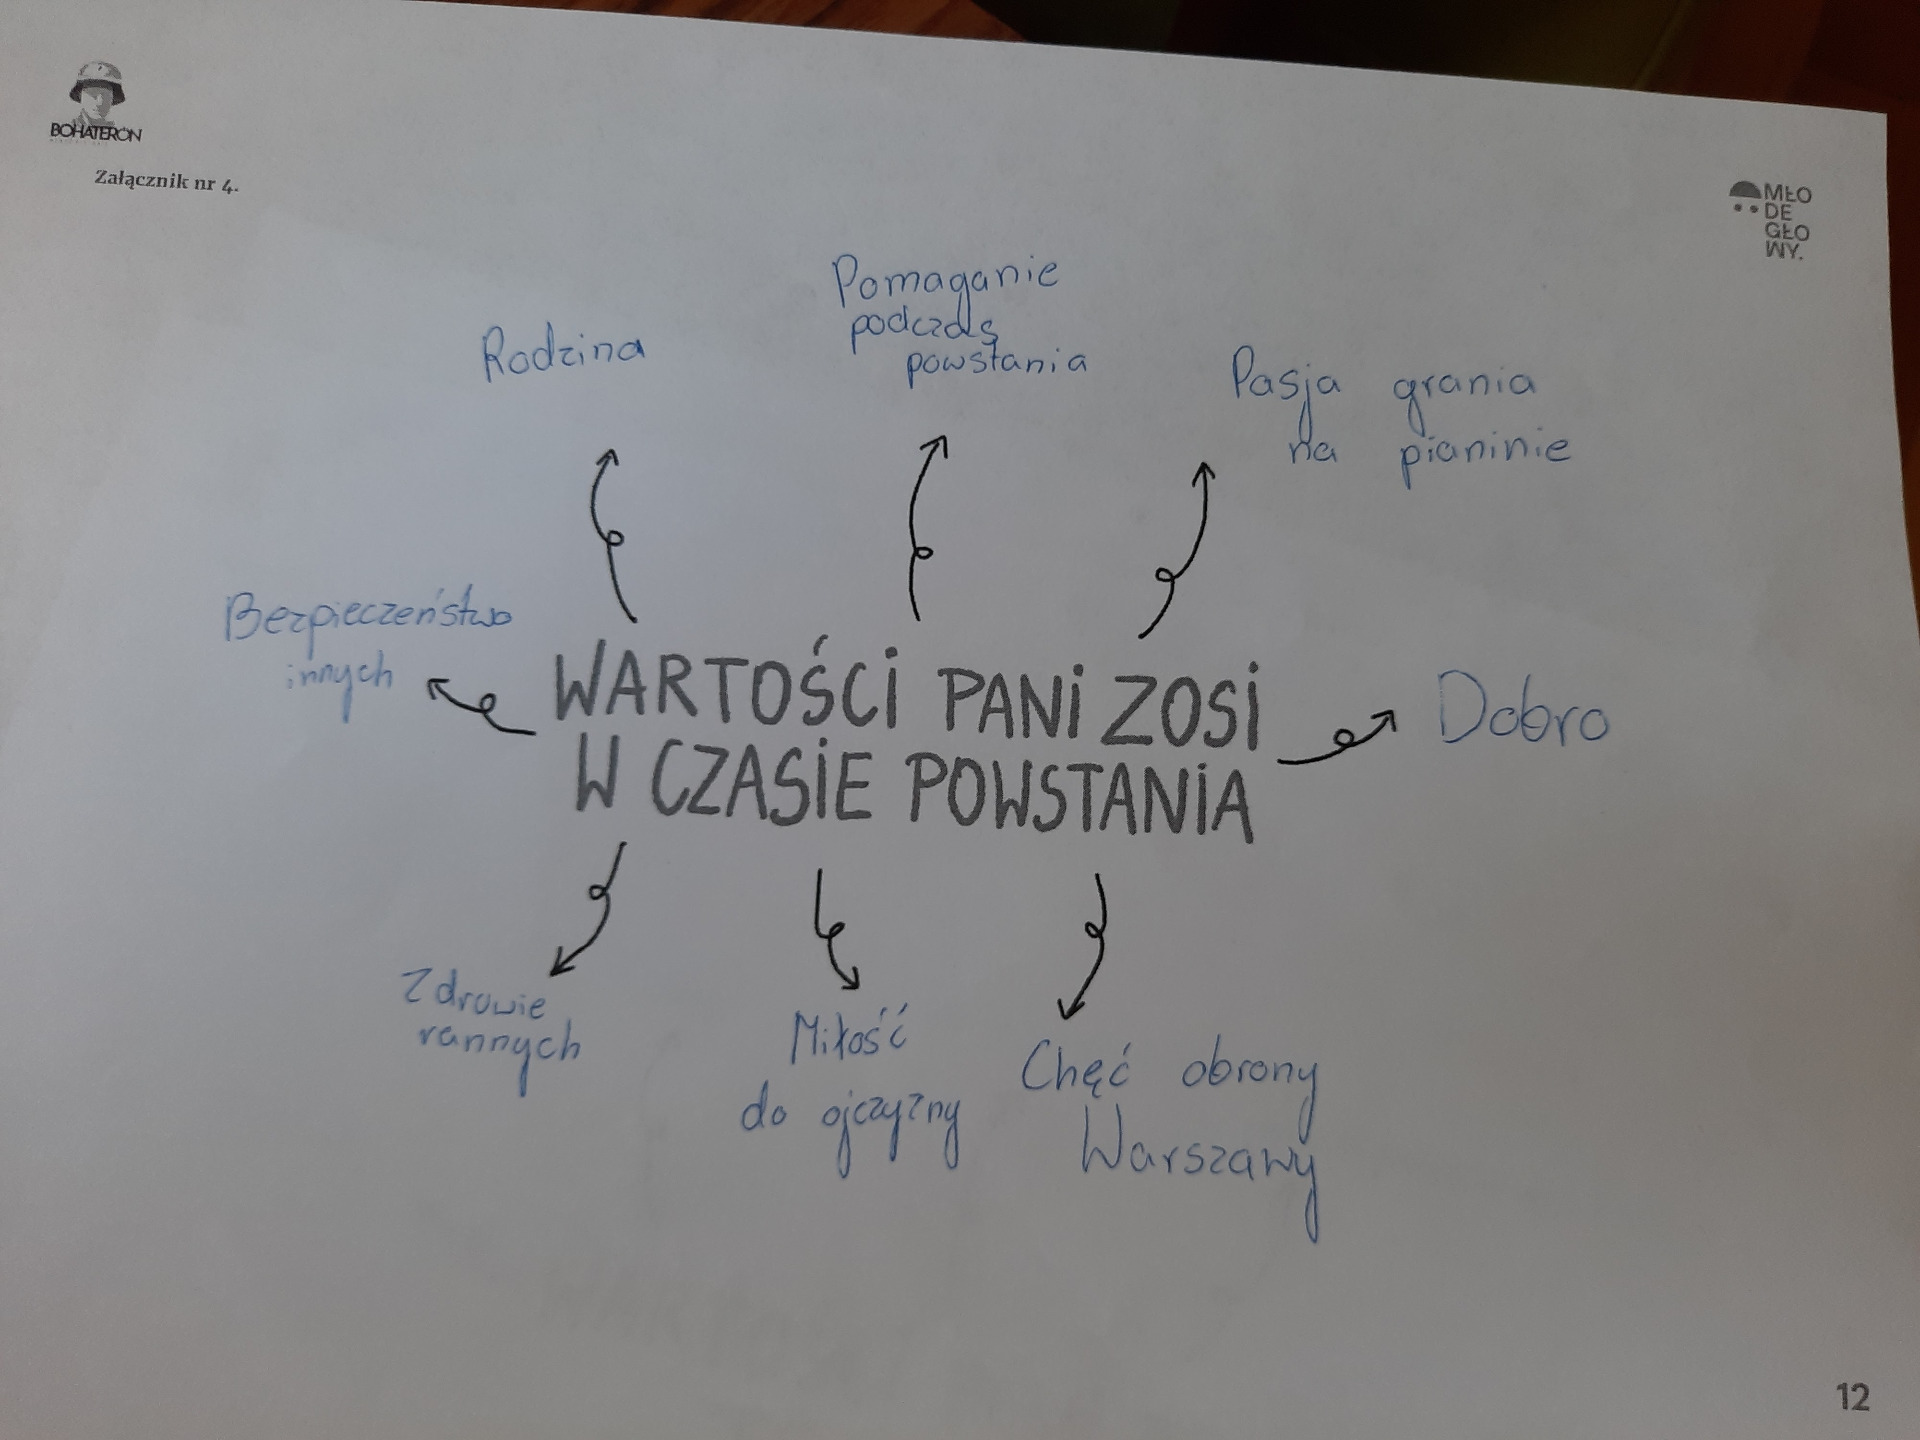 BOHATERON
Załącznik nr 4.
MŁO
DE
GŁO
WY.
Pomaganie
podczas
powstania
Rodzina
Pasja grania
na pianinie
Bezpieczeństwo
innych
WARTOŚCI PANI ZOSI
W CZASIE POWSTANIA
Dobro
Zdrowie
rannych
Miłość
do ojczyzny
Chęć obrony
Warszawy
12